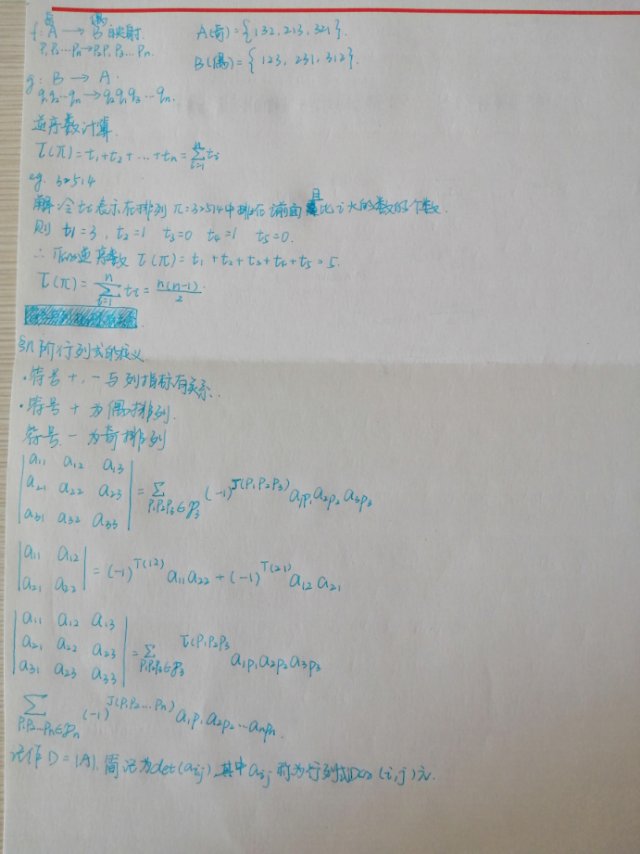 奇 偶
f: A → B 映射. A(奇)={132, 213, 321}.
P₁P₂…Pₙ→P₂P₁P₃…Pₙ. B(偶)={123, 231, 312}.
g: B → A.
q₁q₂…qₙ→q₂q₁q₃…qₙ.
逆序数计算.
τ(π)=t₁+t₂+…+tₙ=∑ᵢ₌₁ⁿ tᵢ
eg. 32514
解:令 tᵢ 表示在排列 π=32514中排在 i 前面且比 i 大的数的个数.
则 t₁=3, t₂=1 t₃=0 t₄=1 t₅=0.
∴ π的逆序数 τ(π)=t₁+t₂+t₃+t₄+t₅=5.
τ(π)=∑ᵢ₌₁ⁿ tᵢ=n(n-1)/2.
§n阶行列式的定义
·符号+, -与列指标有关系.
·符号 + 为偶排列.
符号 - 为奇排列
|a₁₁ a₁₂ a₁₃|
|a₂₁ a₂₂ a₂₃| = ∑ P₁P₂P₃∈𝒫₃ (-1)^τ(P₁P₂P₃) a₁p₁a₂p₂a₃p₃
|a₃₁ a₃₂ a₃₃|
|a₁₁ a₁₂|
|a₂₁ a₂₂| = (-1)^τ(12) a₁₁a₂₂+(-1)^τ(21) a₁₂a₂₁
|a₁₁ a₁₂ a₁₃|
|a₂₁ a₂₂ a₂₃| = ∑ P₁P₂P₃∈𝒫₃ τ(P₁P₂P₃ a₁p₁a₂p₂a₃p₃
|a₃₁ a₂₃ a₃₃|
∑ P₁P₂…Pₙ∈𝒫ₙ (-1)^τ(P₁P₂…Pₙ) a₁p₁a₂p₂…aₙpₙ.
记作 D=|A|. 简记为det(aᵢⱼ) 其中aᵢⱼ 称为行列式D的(i,j)元.